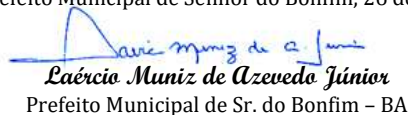 Prefeito Municipal de Senhor do Bonfim, 26 de
Laércio Muniz de A. Junior
Laércio Muniz de Azevedo Júnior
Prefeito Municipal de Sr. do Bonfim – BA